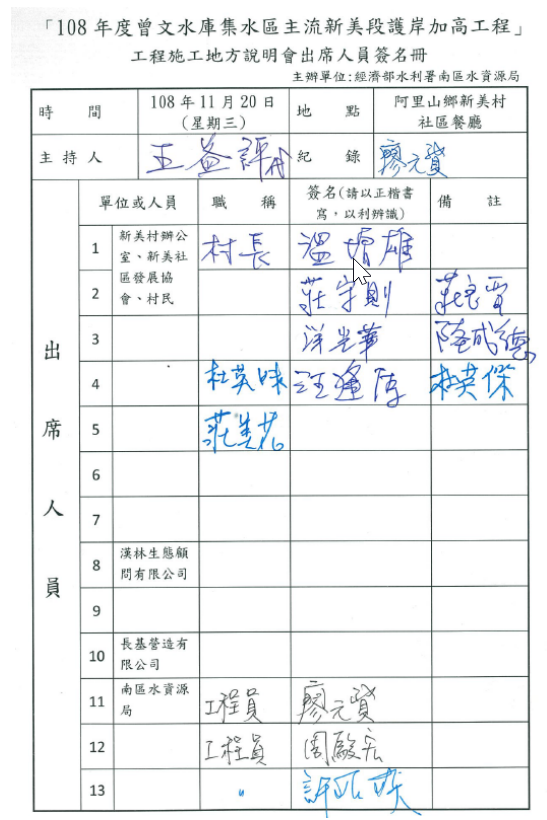 「108 年度曾文水庫集水區主流新美段護岸加高工程」
工程施工地方說明會出席人員簽名冊
主辦單位:經濟部水利署南區水資源局
時 間
108 年 11 月 20 日
(星期三)
地 點
阿里山鄉新美村
社區餐廳
主 持 人
代
紀 錄
廖元賢
出 席 人 員
單位或人員
職 稱
簽名(請以正楷書
寫,以利辨識)
備 註
1
新美村辦公
室、新美社
區發展協
會、村民
村長
溫 雄
2
莊守則
3
洋光華
4
杜英妹
杜英傑
5
莊美若
6
7
8
漢林生態顧
問有限公司
9
10
長基營造有
限公司
11
南區水資源
局
工程員
廖元賢
12
工程員
周啟宏
13
"
許